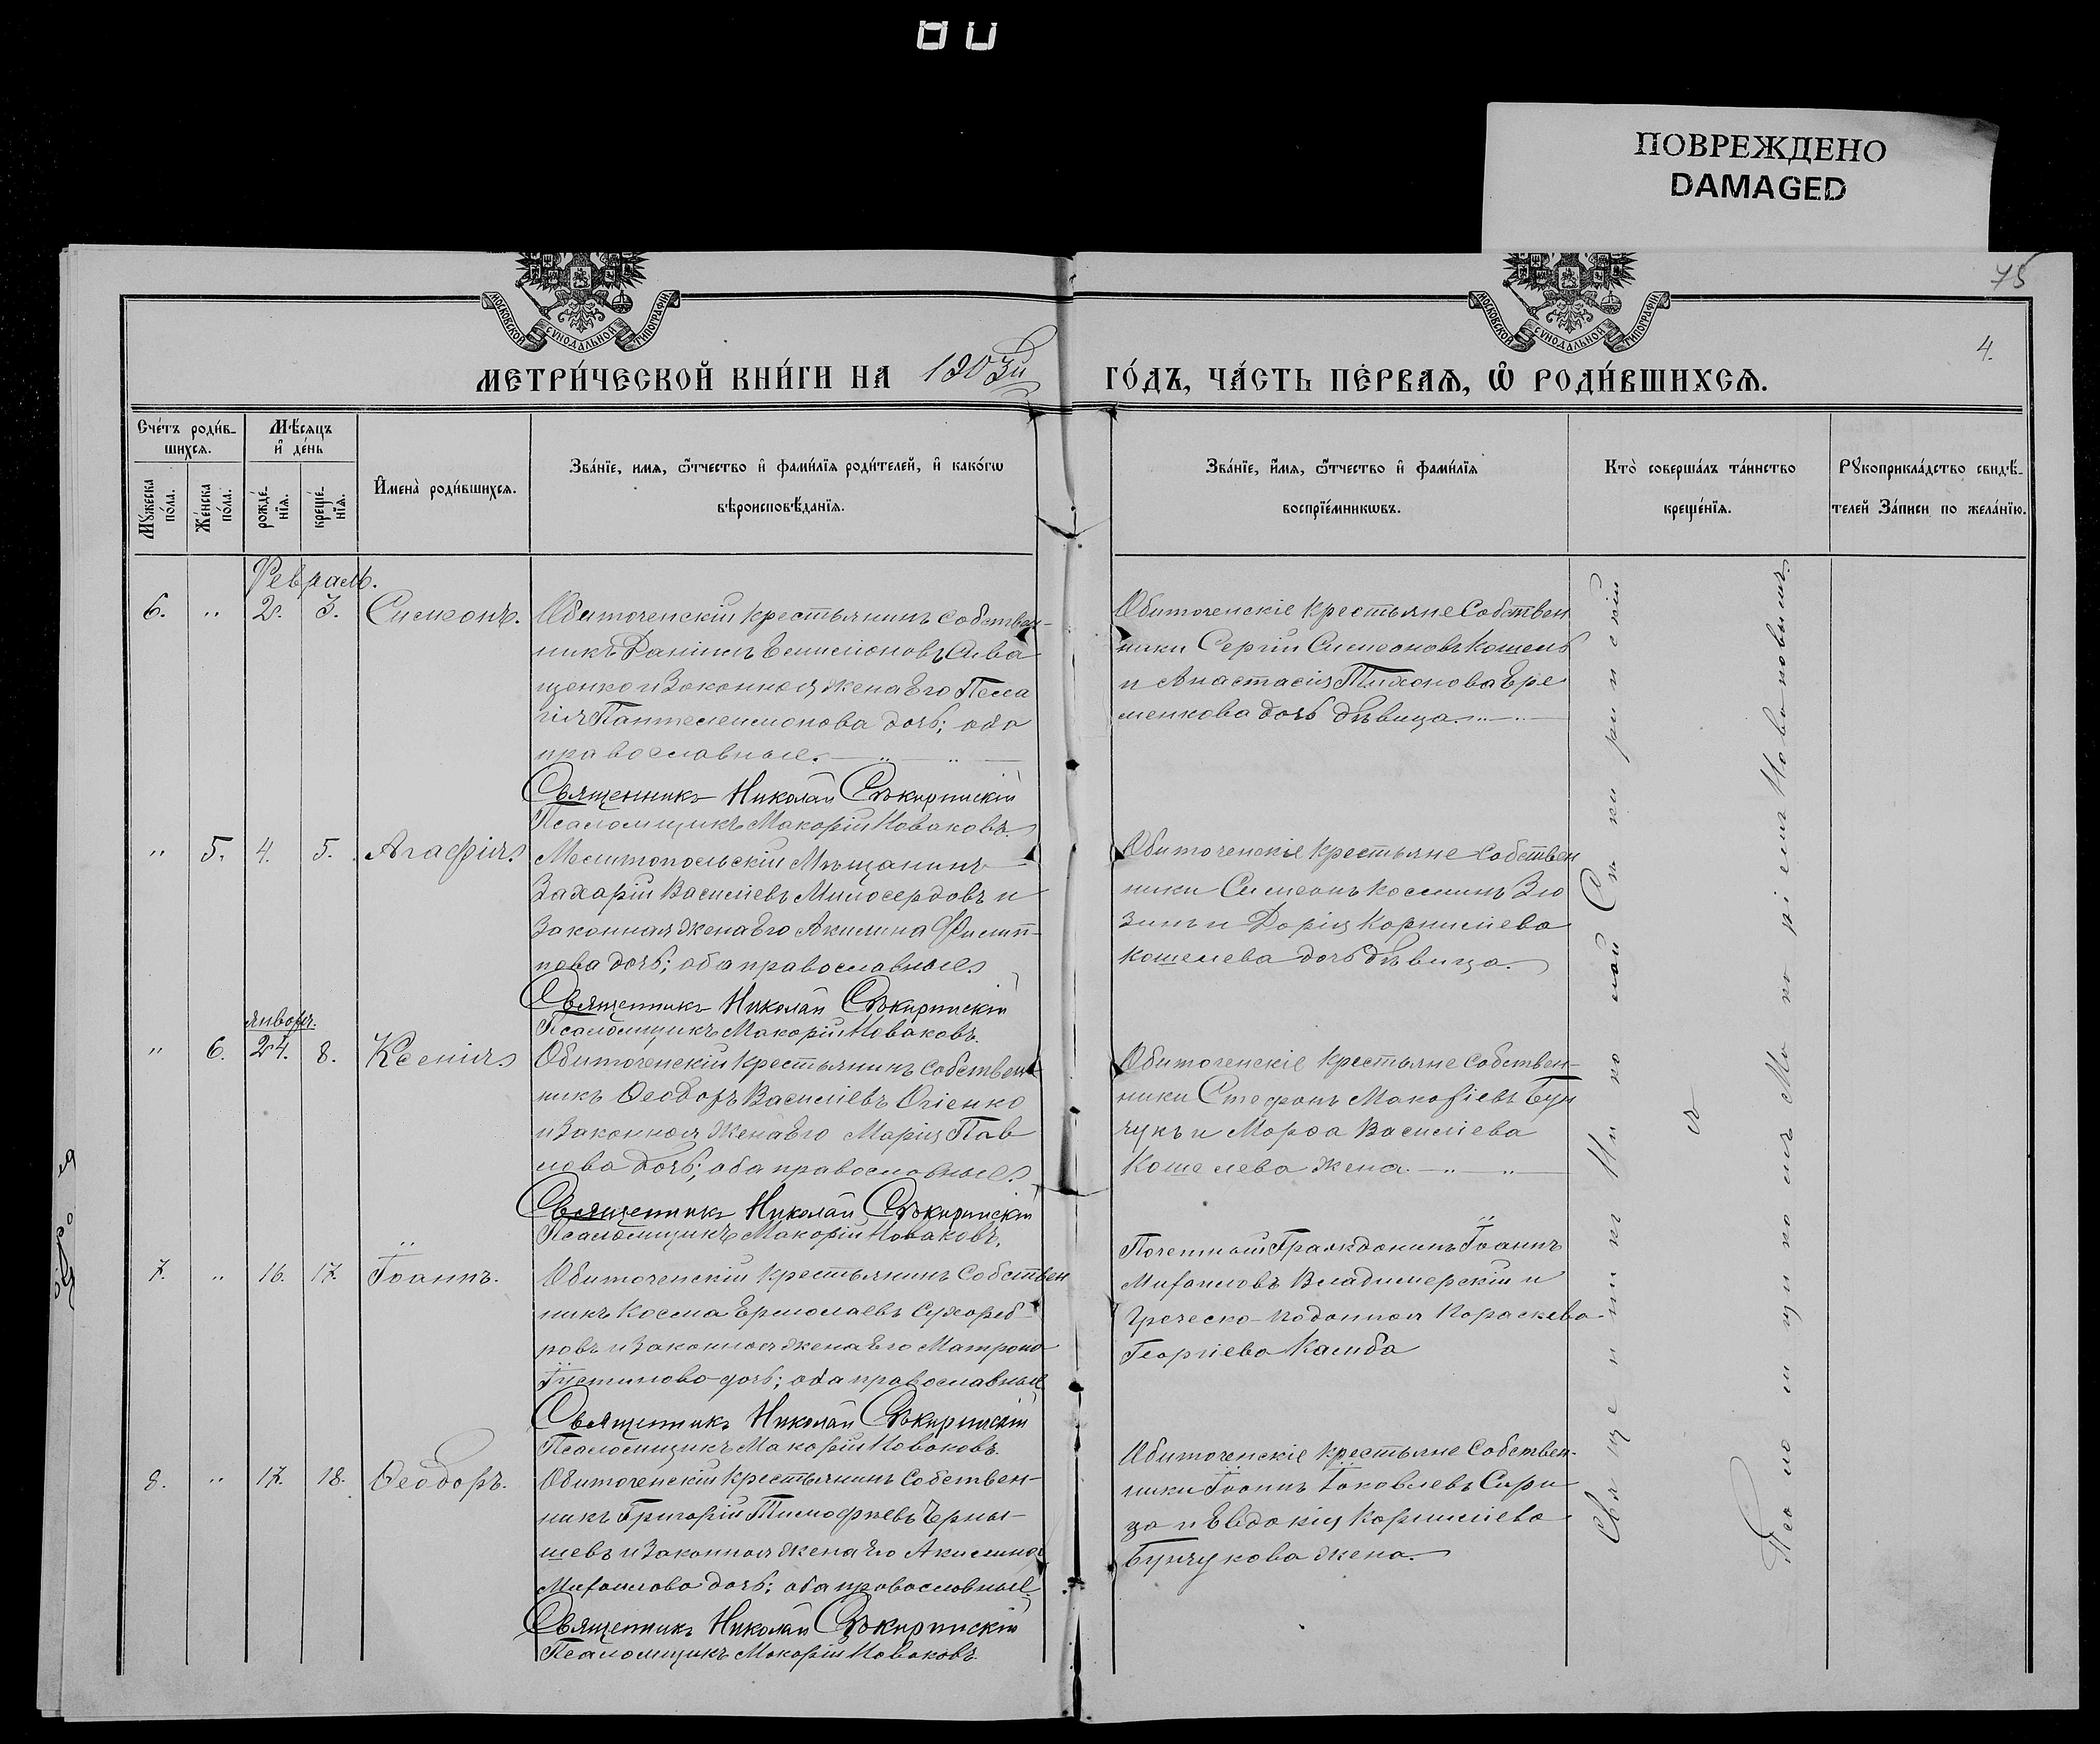 ПОВРЕЖДЕНО
DAMAGED
75
4.
МОСКОВСКОЙ СѴНОДАЛЬНОЙ ТИПОГРАФІИ
МОСКОВСКОЙ СѴНОДАЛЬНОЙ ТИПОГРАФІИ
МЕТРИ́ЧЕСКОЙ КНИ́ГИ НА
ГО́ДЪ, ЧА́СТЬ ПЕ́РВАѦ, Ѡ҆ РОДИ́ВШИХСѦ.
Сче́тъ роди́в-
шихсѧ.
Мѣ́сѧцъ
и҆ де́нь
Му́жеска по́ла.
Же́нска по́ла.
рожде́-нїѧ.
креще́-нїѧ.
И҆мена̀ роди́вшихсѧ.
Зва́нїе, имѧ, ѻ҆́тчество и҆ фами́лїѧ роди́телей, и҆ како́гѡ
вѣроисповѣ́данїѧ.
Зва́нїе, и҆́мѧ, ѻ҆́тчество и҆ фами́лїѧ
воспрїе́мникѡвъ.
Кто̀ соверша́лъ та́инство
креще́нїѧ.
Рꙋкоприкла́дство свидѣ́-
телей За́писи по жела́нїю.
Февраль.
6. " 2. 3. Симеонъ.
Обиточенскій крестьянинъ собствен-
никъ Даніилъ Емиліоновъ Сива
щенко и Законная жена Его Пела
гія Пантелеимонова дочь; оба
православные.
Священникъ Николай Сѣкиринскій
Псаломщикъ Макарій Новаковъ.
Обиточенскіе Крестьяне Собствен
ники Сергій Симеоновъ Кошель
и Анастасія Тихонова Ере
менкова дочь дѣвица.
" 5. 4. 5. Агафія.
Мелитопольскій Мѣщанинъ
Захарій Василіевъ Милосердовъ и
Законная жена Его Акилина Филип-
пова дочь; оба православные.
Священникъ Николай Сѣкиринскій
Псаломщикъ Макарій Новаковъ.
Обиточенскіе Крестьяне собствен
ники Симеонъ Косминъ Зю
зинъ и Дарія Корнилиева
Кошелева дочь дѣвица.
январь.
" 6. 24. 8. Ксенія.
Обиточенскій Крестьянинъ Собствен-
никъ Ѳеодоръ Василіевъ Огіенко
и Законная Жена Его Марія Пав
лова дочь; оба православные.
Священникъ Николай Сѣкиринскій
Псаломщикъ Макарій Новаковъ.
Обиточенскіе Крестьяне собствен-
ники Стефанъ Макаріевъ Бун
чукъ и Марѳа Василіева
Кошелева жена.
7. " 16. 17. Іоаннъ.
Обиточенскій Крестьянинъ Собствен
никъ Косма Ермолаевъ Сухореб
ровъ и Законная жена Его Матрона
Іустинова дочь; оба православные
Священникъ Николай Сѣкиринскій
Псаломщикъ Макарій Новаковъ.
Почетный Гражданинъ Іоаннъ
Михаиловъ Владимерскій и
Греческо-Подонная Параскева
Георгіева Калиба
8. " 17. 18. Ѳеодоръ.
Обиточенскій Крестьянинъ Собствен-
никъ Григорій Тимофѣевъ Черны-
шевъ и Законная жена Его Акилина
Михаилова дочь; оба православные.
Священникъ Николай Сѣкиринскій
Псаломщикъ Макарій Новаковъ
Обиточенскіе Крестьяне Собствен-
ники Іоаннъ Іаковлевъ Сири
ца и Евдокія Корнилиева
Бунчукова жена.
Священникъ Николай Сѣкиринскій
и
Псаломщикъ Макарій Новаковъ.